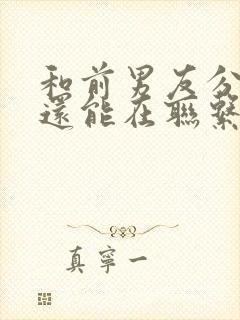 和前男友分
還能在聯繫
真寧一